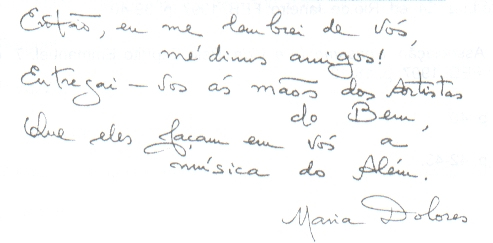 Então, eu me lembrei de vós,
médiuns amigos!
Entregai-vos ás mãos dos Artistas
do Bem,
Que eles façam em vós a
música do Além.
Maria Dolores